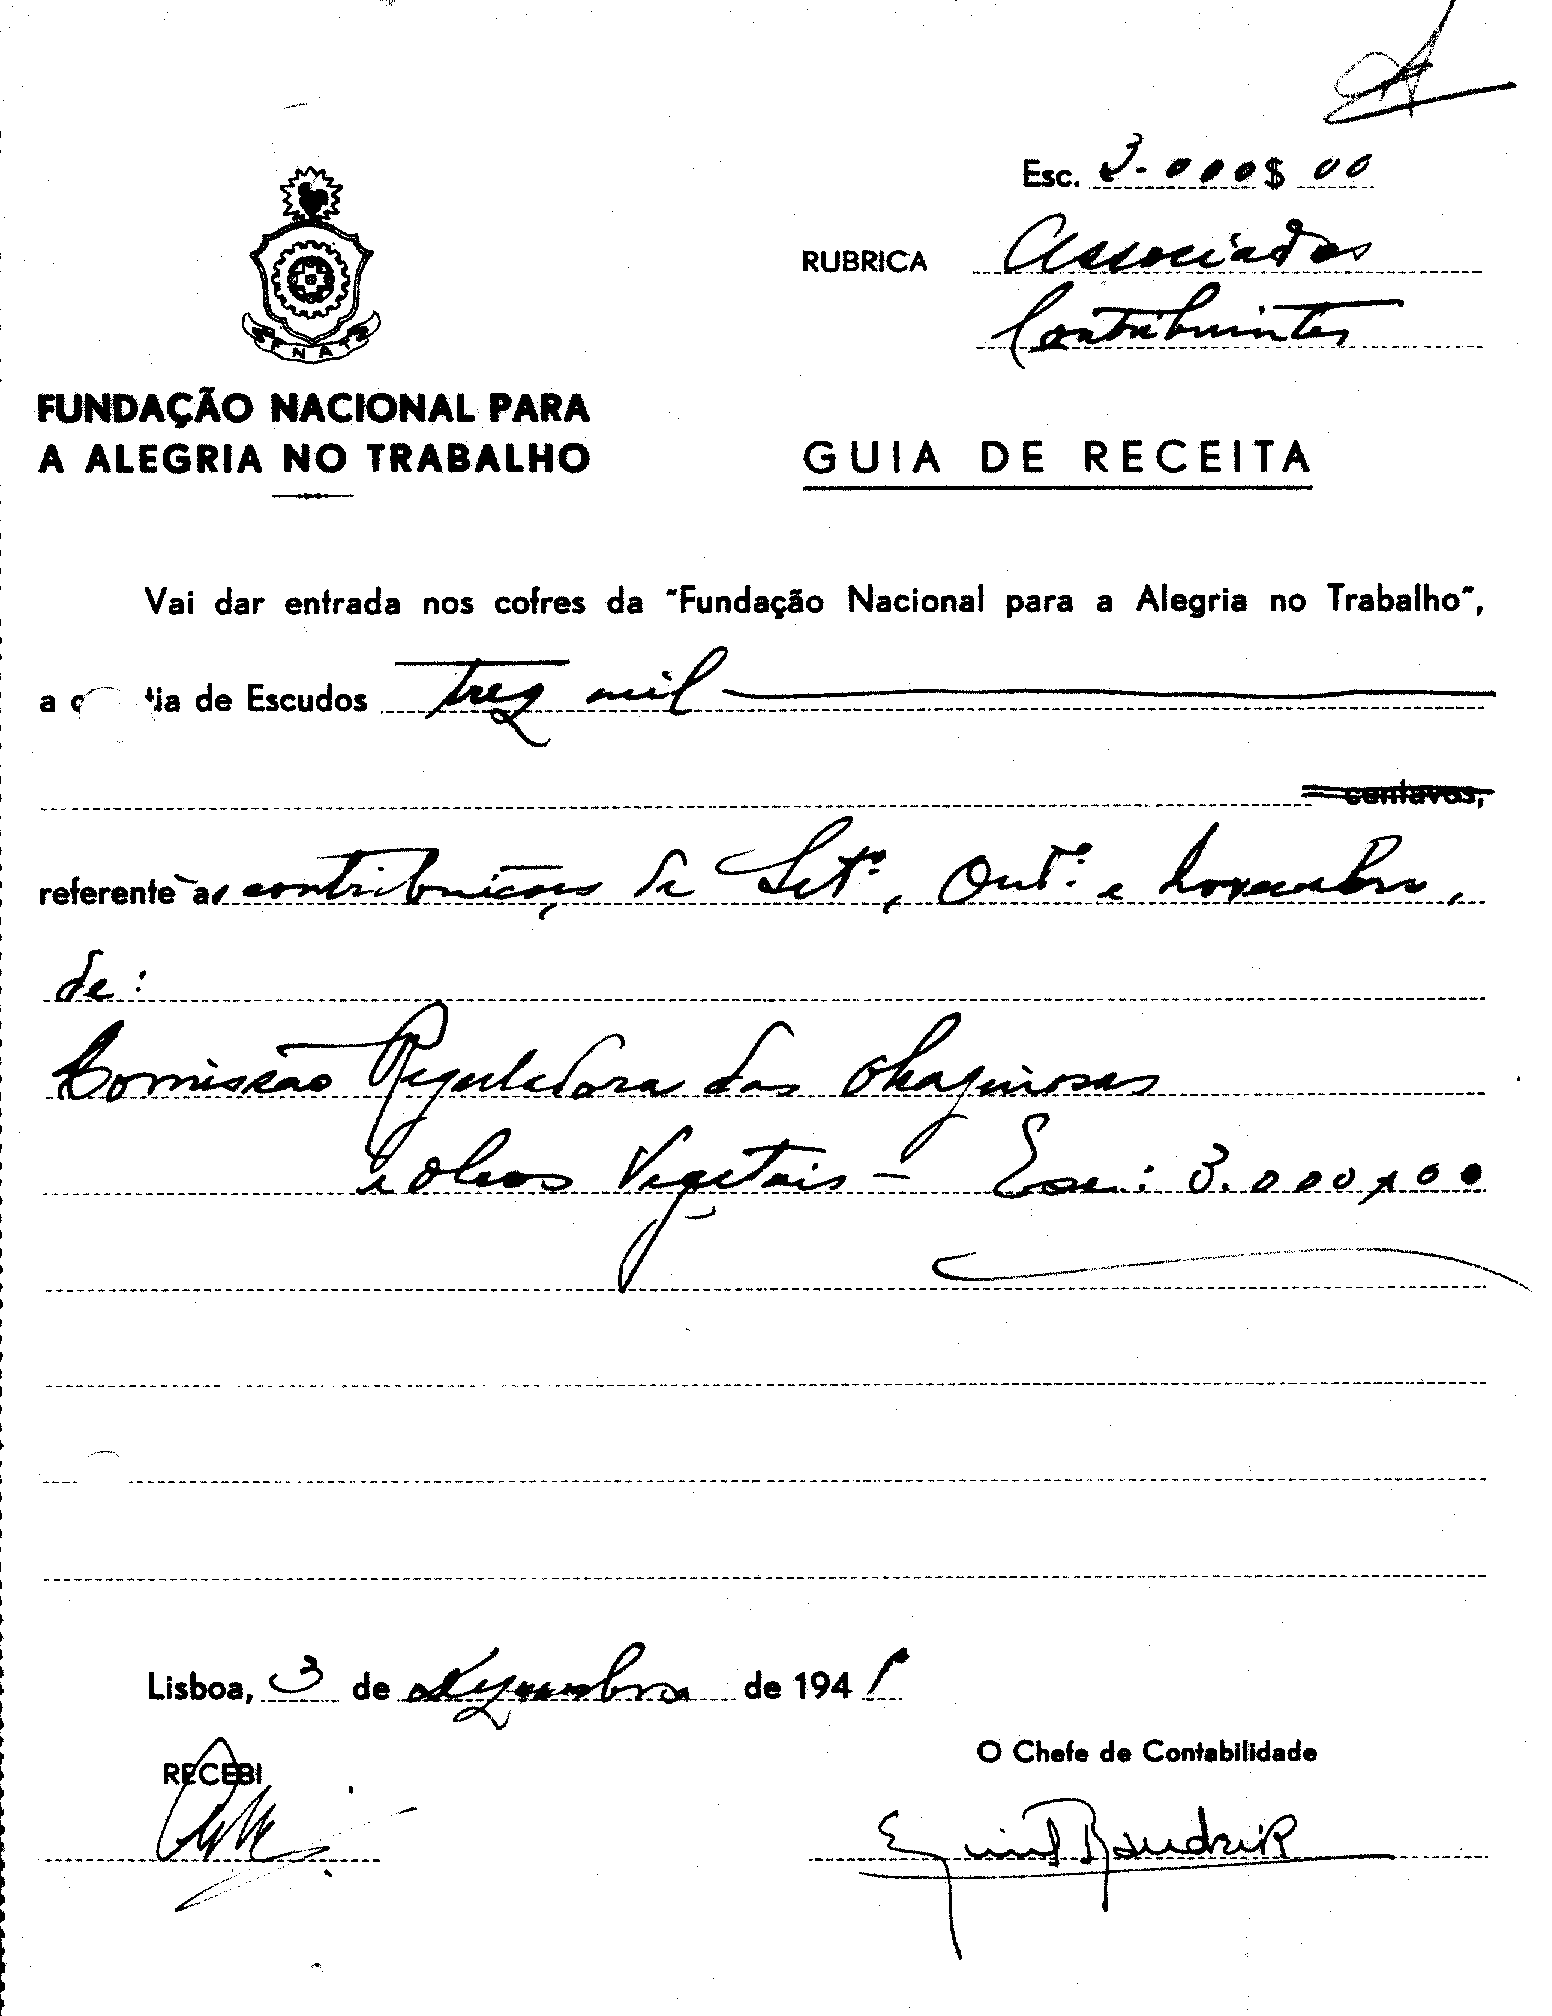 Esc. 3.000$00
RUBRICA Associados
Contribuintes
FNAT
FUNDAÇÃO NACIONAL PARA
A ALEGRIA NO TRABALHO
GUIA DE RECEITA
Vai dar entrada nos cofres da "Fundação Nacional para a Alegria no Trabalho",
a tia de Escudos Trez mil
centavos,
referente às contribuições de Setº., Outº. e Novembro,
de:
Comissão Reguladora das Oleaginosas
e Oleos Vegetais - Esc.: 3.000$00
Lisboa, 3 de Dezembro de 1941
RECEBI
O Chefe de Contabilidade